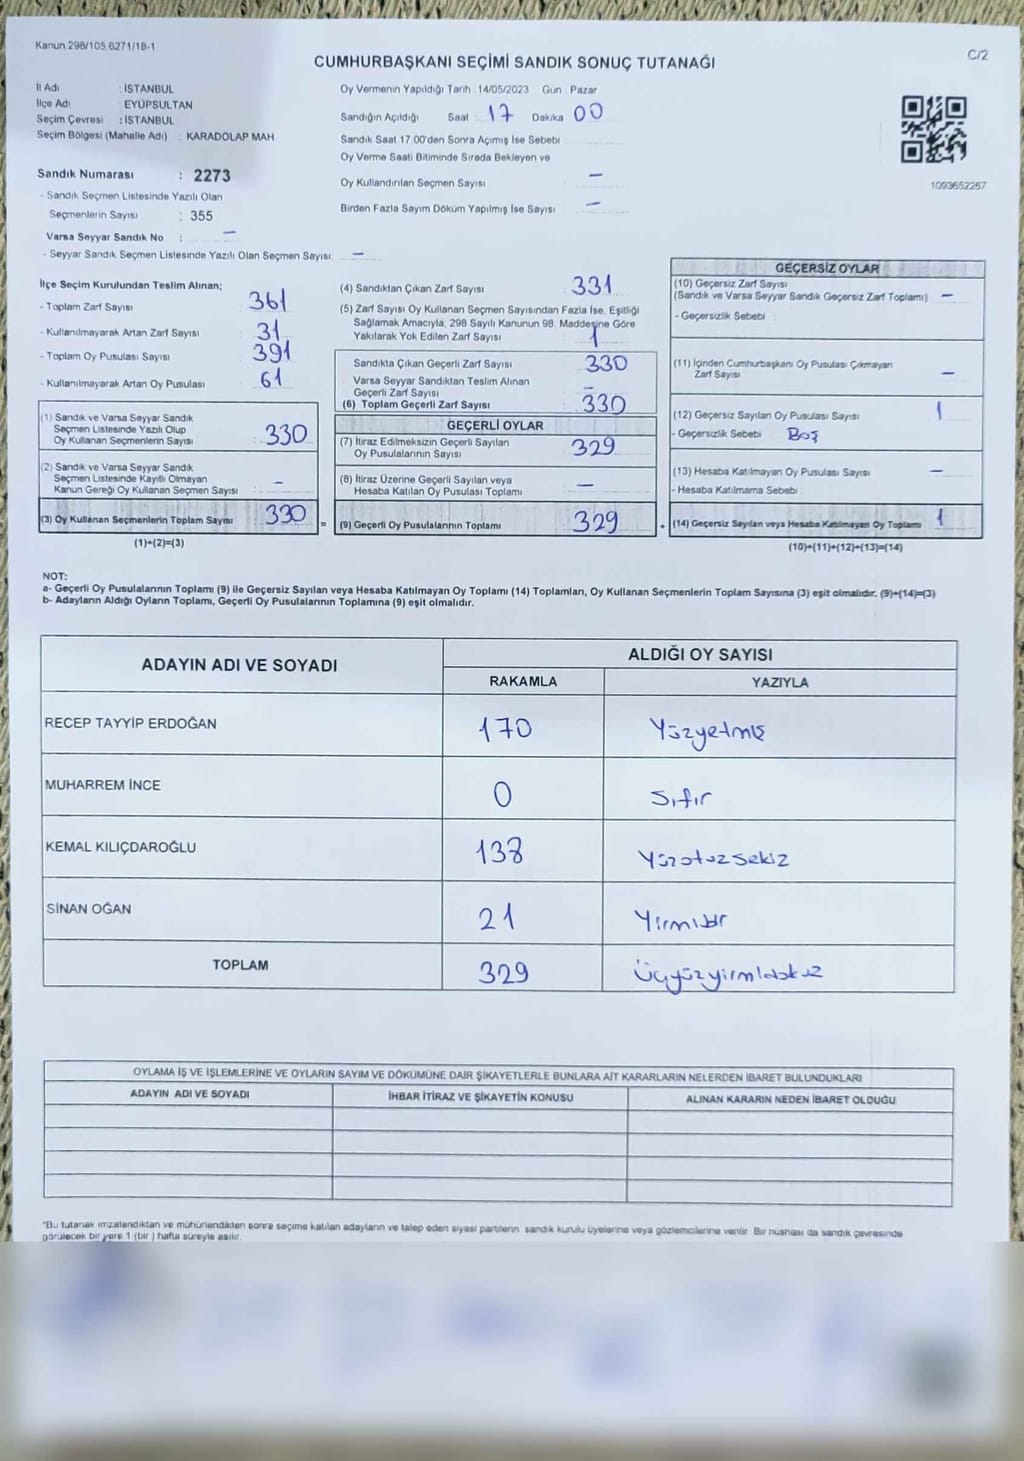 Kanun.298/105,6271/18-1
C/2
CUMHURBAŞKANI SEÇİMİ SANDIK SONUÇ TUTANAĞI
İl Adı : İSTANBUL
İlçe Adı : EYÜPSULTAN
Seçim Çevresi : İSTANBUL
Seçim Bölgesi (Mahalle Adı) : KARADOLAP MAH.
Oy Vermenin Yapıldığı Tarih : 14/05/2023 Gün : Pazar
Sandığın Açıldığı Saat : 17 Dakika 00
Sandık Saat 17.00'den Sonra Açılmış İse Sebebi
Oy Verme Saati Bitiminde Sırada Bekleyen ve
Oy Kullandırılan Seçmen Sayısı : –
Birden Fazla Sayım Döküm Yapılmış İse Sayısı : –
1093652267
Sandık Numarası : 2273
- Sandık Seçmen Listesinde Yazılı Olan
Seçmenlerin Sayısı : 355
Varsa Seyyar Sandık No : –
- Seyyar Sandık Seçmen Listesinde Yazılı Olan Seçmen Sayısı: –
İlçe Seçim Kurulundan Teslim Alınan;
- Toplam Zarf Sayısı 361
- Kullanılmayarak Artan Zarf Sayısı 31
- Toplam Oy Pusulası Sayısı 391
- Kullanılmayarak Artan Oy Pusulası 61
(1) Sandık ve Varsa Seyyar Sandık
Seçmen Listesinde Yazılı Olup
Oy Kullanan Seçmenlerin Sayısı : 330
(2) Sandık ve Varsa Seyyar Sandık
Seçmen Listesinde Kayıtlı Olmayan
Kanun Gereği Oy Kullanan Seçmen Sayısı : –
(3) Oy Kullanan Seçmenlerin Toplam Sayısı : 330 =
(1)+(2)=(3)
(4) Sandıktan Çıkan Zarf Sayısı 331
(5) Zarf Sayısı Oy Kullanan Seçmen Sayısından Fazla İse, Eşitliği
Sağlamak Amacıyla, 298 Sayılı Kanunun 98. Maddesine Göre
Yakılarak Yok Edilen Zarf Sayısı 1
Sandıkta Çıkan Geçerli Zarf Sayısı : 330
Varsa Seyyar Sandıktan Teslim Alınan
Geçerli Zarf Sayısı : –
(6) Toplam Geçerli Zarf Sayısı : 330
GEÇERLİ OYLAR
(7) İtiraz Edilmeksizin Geçerli Sayılan
Oy Pusulalarının Sayısı : 329
(8) İtiraz Üzerine Geçerli Sayılan veya
Hesaba Katılan Oy Pusulası Toplamı : –
(9) Geçerli Oy Pusulalarının Toplamı : 329 +
GEÇERSİZ OYLAR
(10) Geçersiz Zarf Sayısı
(Sandık ve Varsa Seyyar Sandık Geçersiz Zarf Toplamı) –
- Geçersizlik Sebebi :
(11) İçinden Cumhurbaşkanı Oy Pusulası Çıkmayan
Zarf Sayısı –
(12) Geçersiz Sayılan Oy Pusulası Sayısı 1
- Geçersizlik Sebebi : Boş
(13) Hesaba Katılmayan Oy Pusulası Sayısı –
- Hesaba Katılmama Sebebi :
(14) Geçersiz Sayılan veya Hesaba Katılmayan Oy Toplamı 1
(10)+(11)+(12)+(13)=(14)
NOT:
a- Geçerli Oy Pusulalarının Toplamı (9) ile Geçersiz Sayılan veya Hesaba Katılmayan Oy Toplamı (14) Toplamları, Oy Kullanan Seçmenlerin Toplam Sayısına (3) eşit olmalıdır. (9)+(14)=(3)
b- Adayların Aldığı Oyların Toplamı, Geçerli Oy Pusulalarının Toplamına (9) eşit olmalıdır.
ADAYIN ADI VE SOYADI
ALDIĞI OY SAYISI
RAKAMLA YAZIYLA
RECEP TAYYİP ERDOĞAN 170 Yüzyetmiş
MUHARREM İNCE 0 Sıfır
KEMAL KILIÇDAROĞLU 138 Yüzotuzsekiz
SİNAN OĞAN 21 Yirmibir
TOPLAM 329 Üçyüzyirmidokuz
OYLAMA İŞ VE İŞLEMLERİNE VE OYLARIN SAYIM VE DÖKÜMÜNE DAİR ŞİKAYETLERLE BUNLARA AİT KARARLARIN NELERDEN İBARET BULUNDUKLARI
ADAYIN ADI VE SOYADI İHBAR İTİRAZ VE ŞİKAYETİN KONUSU ALINAN KARARIN NEDEN İBARET OLDUĞU
*Bu tutanak imzalandıktan ve mühürlendikten sonra seçime katılan adayların ve talep eden siyasi partilerin sandık kurulu üyelerine veya gözlemcilerine verilir. Bir nüshası da sandık çevresinde
görülecek bir yere 1 (bir ) hafta süreyle asılır.